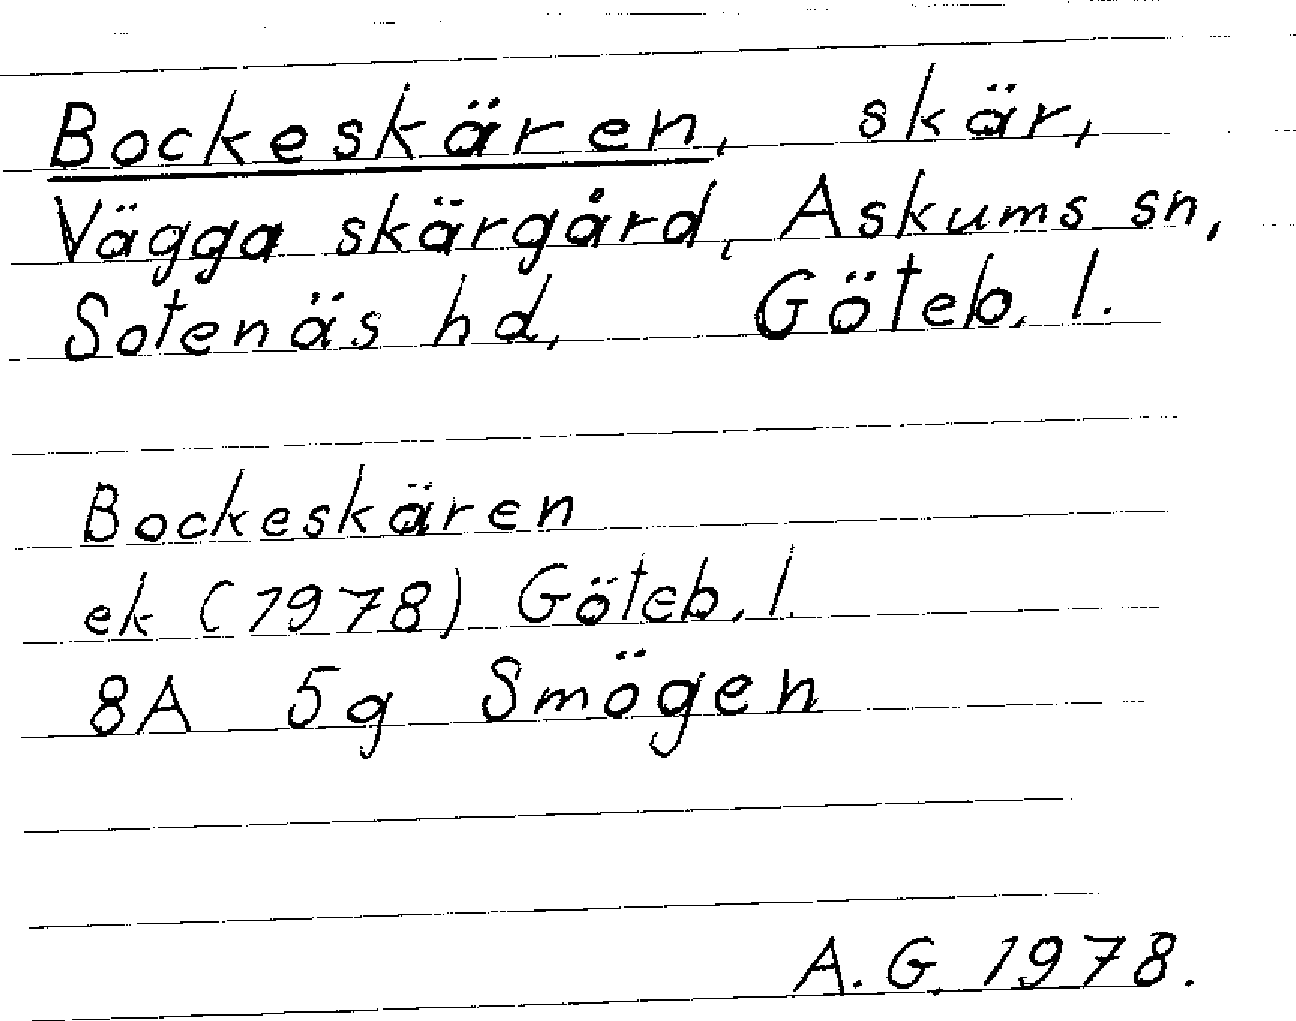 Bockeskären, skär,
Vägga skärgård, Askums sn,
Sotenäs hd, Göteb. l.
Bockeskären
ek (1978) Göteb. l.
8A 5g Smögen
A. G. 1978.